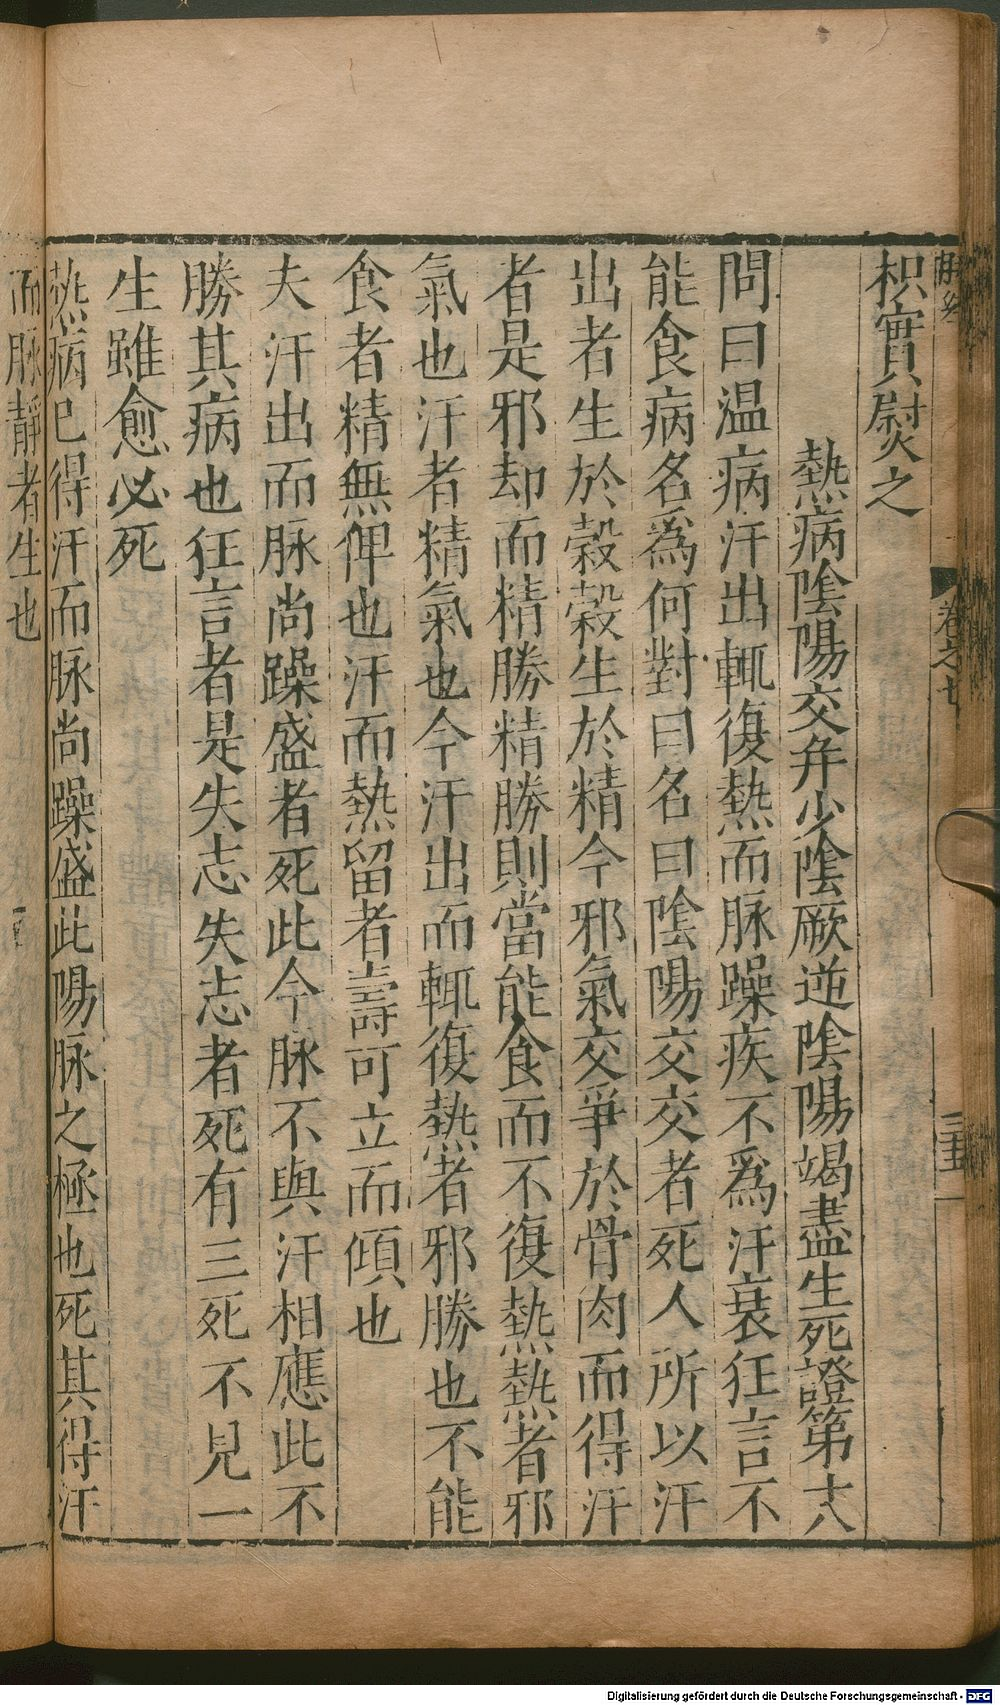 枳實熨之
熱病陰陽交并少陰厥逆陰陽竭盡生死證第十八
問曰温病汗出輒復熱而脉躁疾不爲汗衰狂言不
能食病名爲何對曰名曰陰陽交交者死人所以汗
出者生於穀穀生於精今邪氣交爭於骨肉而得汗
者是邪却而精勝精勝則當能食而不復熱熱者邪
氣也汗者精氣也今汗出而輒復熱者邪勝也不能
食者精無俾也汗而熱留者壽可立而傾也
夫汗出而脉尚躁盛者死此今脉不與汗相應此不
勝其病也狂言者是失志失志者死有三死不見一
生雖愈必死
熱病已得汗而脉尚躁盛此陽脉之極也死其得汗
而脉靜者生也
卷之七
Digitalisierung gefördert durch die Deutsche Forschungsgemeinschaft - DFG